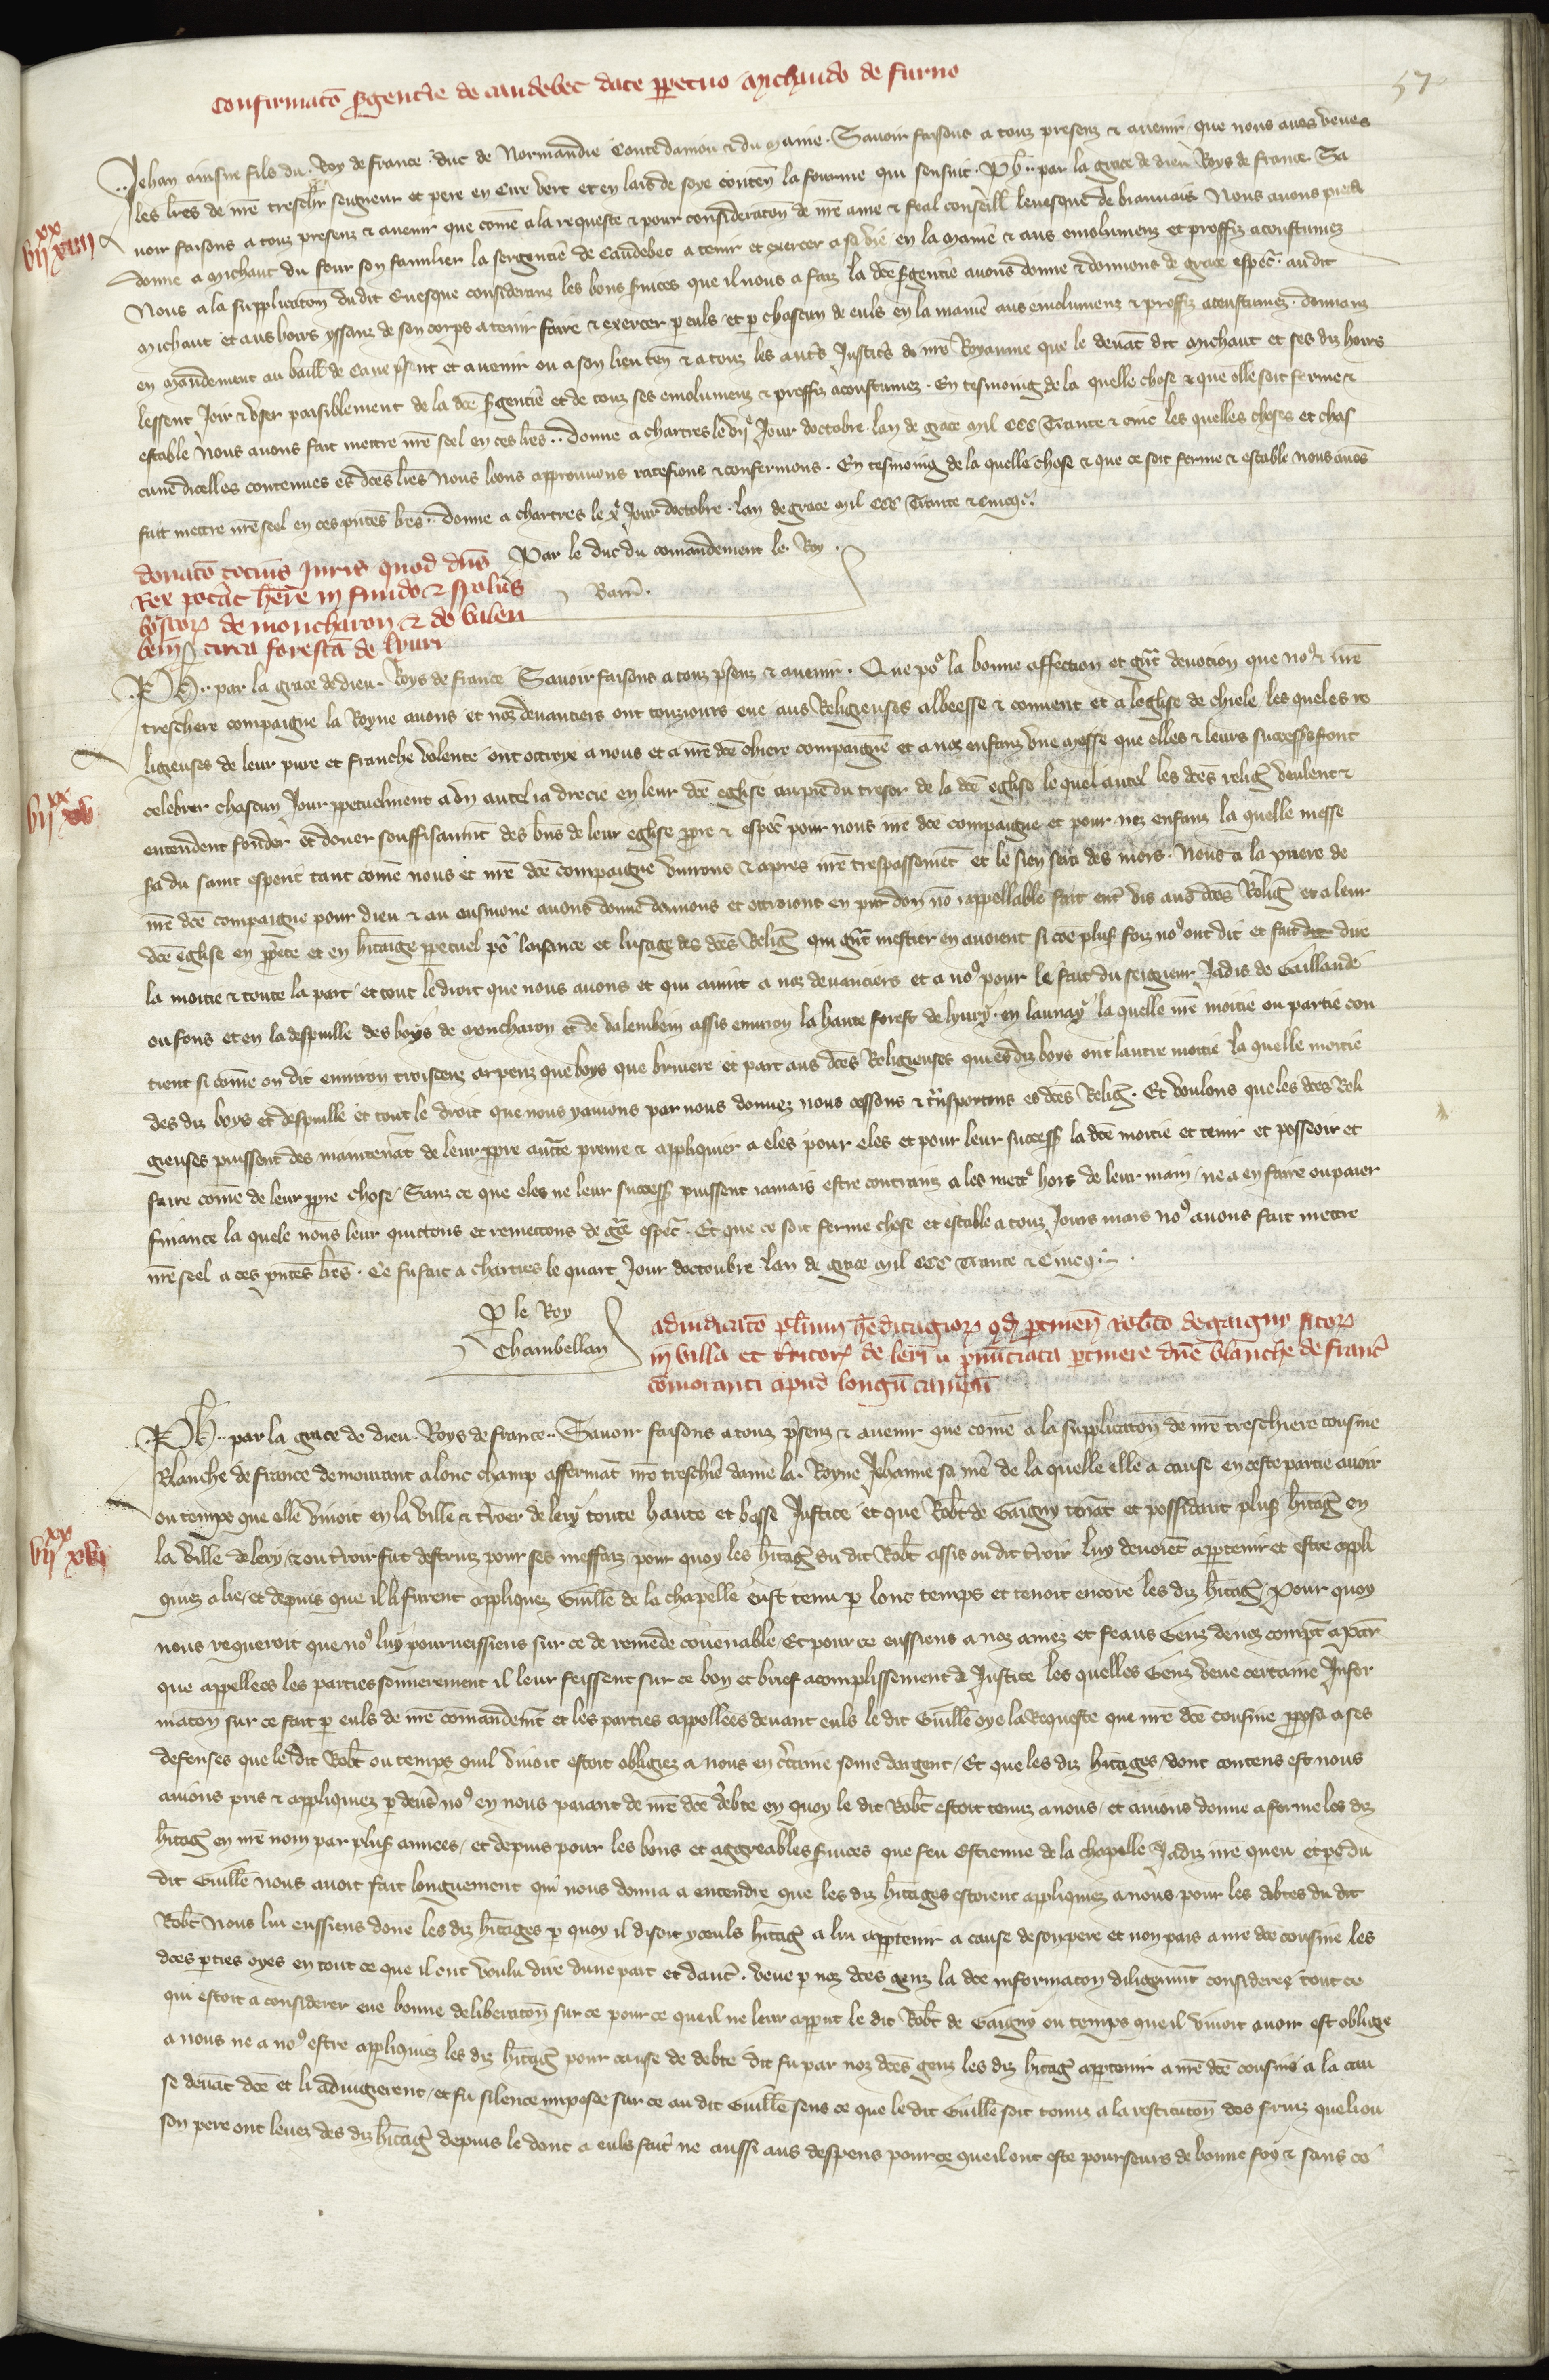 57
Confirmatō s̄gent̄ie de caudebec date ꝑpetuo Michaudo de furno
Jehan ainsne fils du Roy de France duc de Normandie Conte danjou ⁊ du Maine. Savoir faisons a touz presenz ⁊ avenir que nous avōs veues
les lr̄es de nr̄e treschīr seigneur et pere en Cire vert et en lais de soye conten̄ la fourme qui sensuit. Ph̄.. par la grace de dieu Roys de france. Sa
voir faisons a touz presenz ⁊ avenir que com̄e a la requeste ⁊ pour consideratōn de nr̄e ame ⁊ feal conseill̄ levesque de biauvais Nous avons pieca
vii xx xiiii
donne a Michaut du four son familier la sergentīe de Caudebec a tenir et exercer a sa vie en la maniē ⁊ aus emolumenz et proffiz acoustumez
Nous a la supplicatōn dudit Evesque consideranz les bons s̄vices que il nous a faiz la dc̄e s̄gentie avons donne ⁊ donnons de grace espec̄. audit
Michaut et aus hoirs yssanz de son corps a tenir faire ⁊ exercer ꝑ euls et ꝑ chascun de euls en la maniē aus emolumenz ⁊ proffiz acoustumez. donnanz
en mandement au baill̄ de Caux p̄sent et avenir ou a son lieu ten̄ ⁊ a touz les aut̄s Justic̄s de nr̄e Royaume que le devāt dit Michaut et ses diz hoirs
lessent Joir ⁊ user paisiblement de la dc̄e s̄gentīe et de touz ses emolumenz ⁊ proffiz acoustumez. En tesmoing de la quelle chose ⁊ que elle soit ferme ⁊
estable Nous avons fait mettre nr̄e seel en ces lr̄es.. donne a chartres le vii.e Jour doctobre. lan de grace mil CCC Trante ⁊ cinc les quelles choses et chas
cune dicelles contenues es dc̄es lr̄es Nous loons approuvons ratefions ⁊ confermons. En tesmoing de la quelle chose ⁊ que ce soit ferme ⁊ estable nous avōs
fait mettre nr̄e seel en ces pn̄tes lr̄es.. donne a chartres le x.e Jour doctobre. lan de grace mil CCC Trante ⁊ cincq.
Par le duc du com̄andement le. Roy.
Barr̄.
donatō tocius Juris quod dn̄s
Rex pot̄at h̄ere in fundo ⁊ spoliis
boscoꝝ de moncharon ⁊ de valen
beim̄ circa forestā de livri
Ph̄.. par la grace de dieu. Roys de france Savoir faisons a touz p̄senz ⁊ avenir. Que poꝰ la bonne affection et gn̄t devotion que noꝰ ⁊ nr̄e
treschere compaigne la Royne avons et noz devantiers ont touzjours eue aus Religieuses abbeesse ⁊ convent et a leglise de chiele les queles re
ligieuses de leur pure et franche volente ont ottroye a nous et a nr̄e dc̄e chiere compaigne et a noz enfanz une messe que elles ⁊ leurs success̄s front
vii xx xv
celebrer chascun Jour ꝑpetuelment a un autel ia drecie en leur dc̄e eglise au pie du tresor de la dc̄e eglise le quel autel les dc̄es reliḡ veulent ⁊
entendent fonder et douer souffisaum̄t des biēs de leur eglise ꝓpre ⁊ espec̄ pour nous nr̄e dc̄e compaigne et pour noz enfanz la quelle messe
sa du saint esperit tant com̄e nous et nr̄e dc̄e compaigne vivrons ⁊ apres nr̄e trespassemēt et le sien sera des mors. Nous a la priere de
nr̄e dc̄e compaigne pour dieu ⁊ en ausmone avons donne donnons et ottroions en pur don nō rappellable fait ent̄ vis aus dc̄es Reliḡ et a leur
dc̄e eglise en ꝓp̄ete et en h̄itaige ꝑpetuel poꝰ laisance et lusage des dc̄es Reliḡ qui gn̄t mestier en avoient si cōe plus̄ foiz noꝰ ont dit et fait dire
la moitie ⁊ toute la part et tout le droit que nous avons et qui avint a noz devanciers et a noꝰ pour le fait du seigneur Jadis de Gaillande
ou fons et en la despuille des boys de Moncharon et de valembein assis environ la haute forest de livry. en launay la quelle nr̄e moitie ou partie con
tient si com̄e on dit environ troiscenz arpenz que boys que bruiere et part aus dc̄es Religieuses qui es diz boys ont lautre moitie la quelle moitie
des diz boys et despuille et tout le droit que nous y avons par nous donnez nous cessons ⁊ tn̄sportons es dc̄es Reliḡ. Et voulons que les dc̄es Reli
gieuses puissent des maintenāt de leur ꝓpre auct̄e prenre ⁊ appliquier a eles pour eles et pour leur success̄ la dc̄e moitie et tenir et posseoir et
faire com̄e de leur ꝓpre chose. Sanz ce que eles ne leur success̄ puissent iamais estre contrainz a les mett̄e hors de leur main / ne a en faire ou paier
finance la quele nous leur quittons et remettons de gr̄ce espec̄. Et que ce soit ferme chose et estable a touz Jours mais noꝰ avons fait mettre
nr̄e seel a ces pn̄tes lr̄es. Ce fu fait a chartres le quart Jour doctoubre lan de grace mil CCC Trante ⁊ Cincq.
ꝑ le Roy
Chambellan
adiudicatō pl̄ium h̄editagioꝝ qd̄ ꝑtinen̄ Rob̄to de gaigny sitoꝝ
in villa et t̄ritorꝝ de leri ⁊ ꝓnūciata ꝑtinere dn̄e blanche de franc̄
cōmoranti apud longū campū
Ph̄.. par la grace de dieu. Roys de france.. Savoir faisons a touz p̄senz ⁊ avenir que com̄e a la supplicatōn de nr̄e treschiere cousine
Blanche de france demourant a lonc champ affermāt nr̄e treschīe dame la. Royne Jehanne sa mē de la quelle elle a cause en ceste partie avoir
ou temps que elle vivoit en la ville ⁊ t̄rōer de lery toute haute et basse Justice et que Rob̄t de Gaigny tenāt et possidant plus̄ h̄itaḡ en
vii xx xvi
la ville de lery / ⁊ ou t̄roir fut destruiz pour ses meffaiz pour quoy les h̄itaḡ du dit Rob̄t assis ou dit t̄roir luy devoiēt appartenir et estre appli
quiez a lie / et depuis que il li furent appliquez Guill̄e de la chapelle eust tenu ꝑ lonc temps et tenoit encore les diz h̄itaḡ / Pour quoy
nous requeroit que noꝰ luy pourveissiens sur ce de remede covenable / Et pour ce eussiens a noz amez et feaus Genz de noz compt̄ a Par̄
que appellees les parties som̄erement il leur feissent sur ce bon et brief acomplissement de Justice les quelles Genz veue certaine Infor
matōn sur ce fait ꝑ euls de nr̄e com̄andemēt et les parties appellees devant euls le dit Guill̄e oye la Requeste que nr̄e dc̄e cousine ꝓposa a ses
defenses que le dit Rob̄t ou temps quil vivoit estoit obligiez a nous en c̄taine som̄e dargent / Et que les diz h̄itages / dont contens est nous
avions pris ⁊ appliquiez ꝑ dev̄s noꝰ en nous paiant de nr̄e dc̄e debte en quoy le dit Rob̄t estoit tenuz a nous / et avions donne a ferme les diz
h̄itaḡ en nr̄e nom par plus̄ annees / et depuis pour les bons et aggreables s̄vices que feu Estienne de la chapelle Jadiz nr̄e queu et ꝑe du
dit Guill̄e nous avoit fait longuement qui nous donna a entendre que les diz h̄itages estoient appliquiez a nous pour les debtes du dit
Rob̄t nous lui eussiens done les diz h̄itages ꝑ quoy il disoit yceuls h̄itaḡ a lui appartenir a cause de son pere et non pais a nr̄e dc̄e cousine les
dc̄es ꝑties oyes en tout ce que il ont voulu dire dune part et daut̄. veue ꝑ noz dc̄es genz la dc̄e informatōn diligemm̄t considerez tout ce
qui estoit a considerer eue bonne deliberatōn sur ce pour ce que il ne leur apparut le dit Rob̄t de Gaigny ou temps que il vivoit avoir est oblige
a nous ne a noꝰ estre appliquiez les diz h̄itaḡ pour cause de debte dit fu par noz dc̄es genz les diz h̄itaḡ appartenir a nr̄e dc̄e cousine a la cau
se devāt dc̄e et li adiugierent / et fu silence imposee sur ce au dit Guill̄e sens ce que le dit Guill̄e soit tenuz a la restitucōn des fruiz que li ou
son pere ont levez des diz h̄itaḡ depuis le dont a euls fait ne aussi aus despens pour ce que il ont este pourseurs de bonne foy ⁊ sans ce